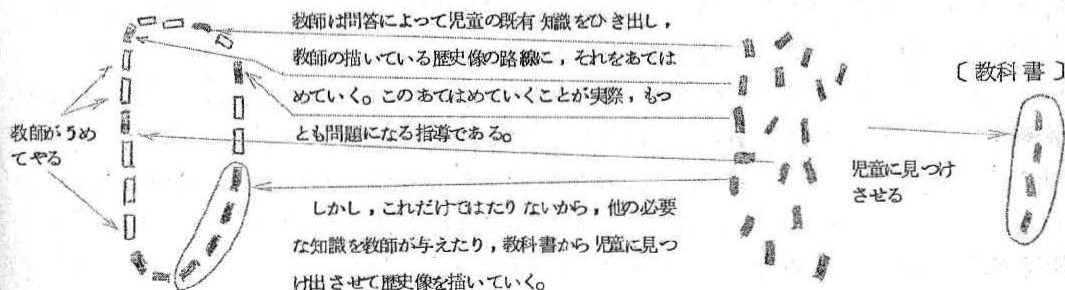 教師は問答によって児童の既有知識をひき出し，
教師の描いている歴史像の路線に，それをあては
めていく。このあてはめていくことが実際，もっ
とも問題になる指導である。
しかし，これだけではたりないから，他の必要
な知識を教師が与えたり，教科書から児童に見つ
け出させて歴史像を描いていく。
教師がうめ
てやる
児童に見つけ
させる
〔教科書〕